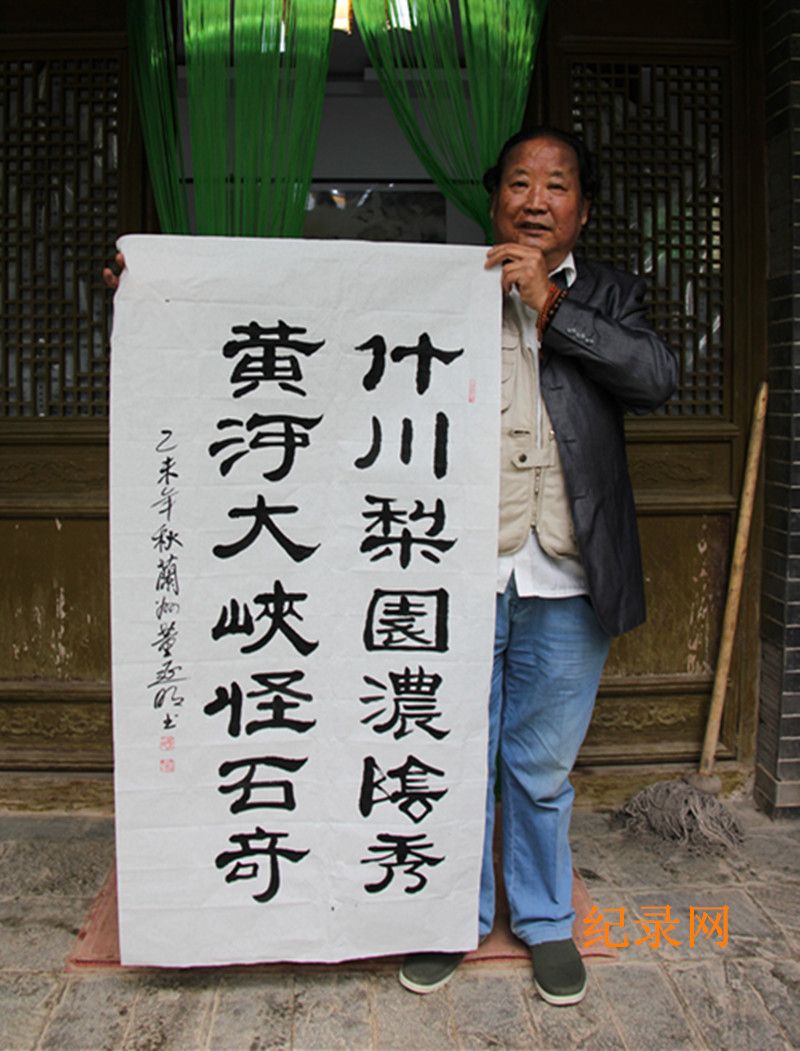 什川梨園濃陰秀
黄河大峽怪石奇
乙未年秋蘭州董明书
纪录网